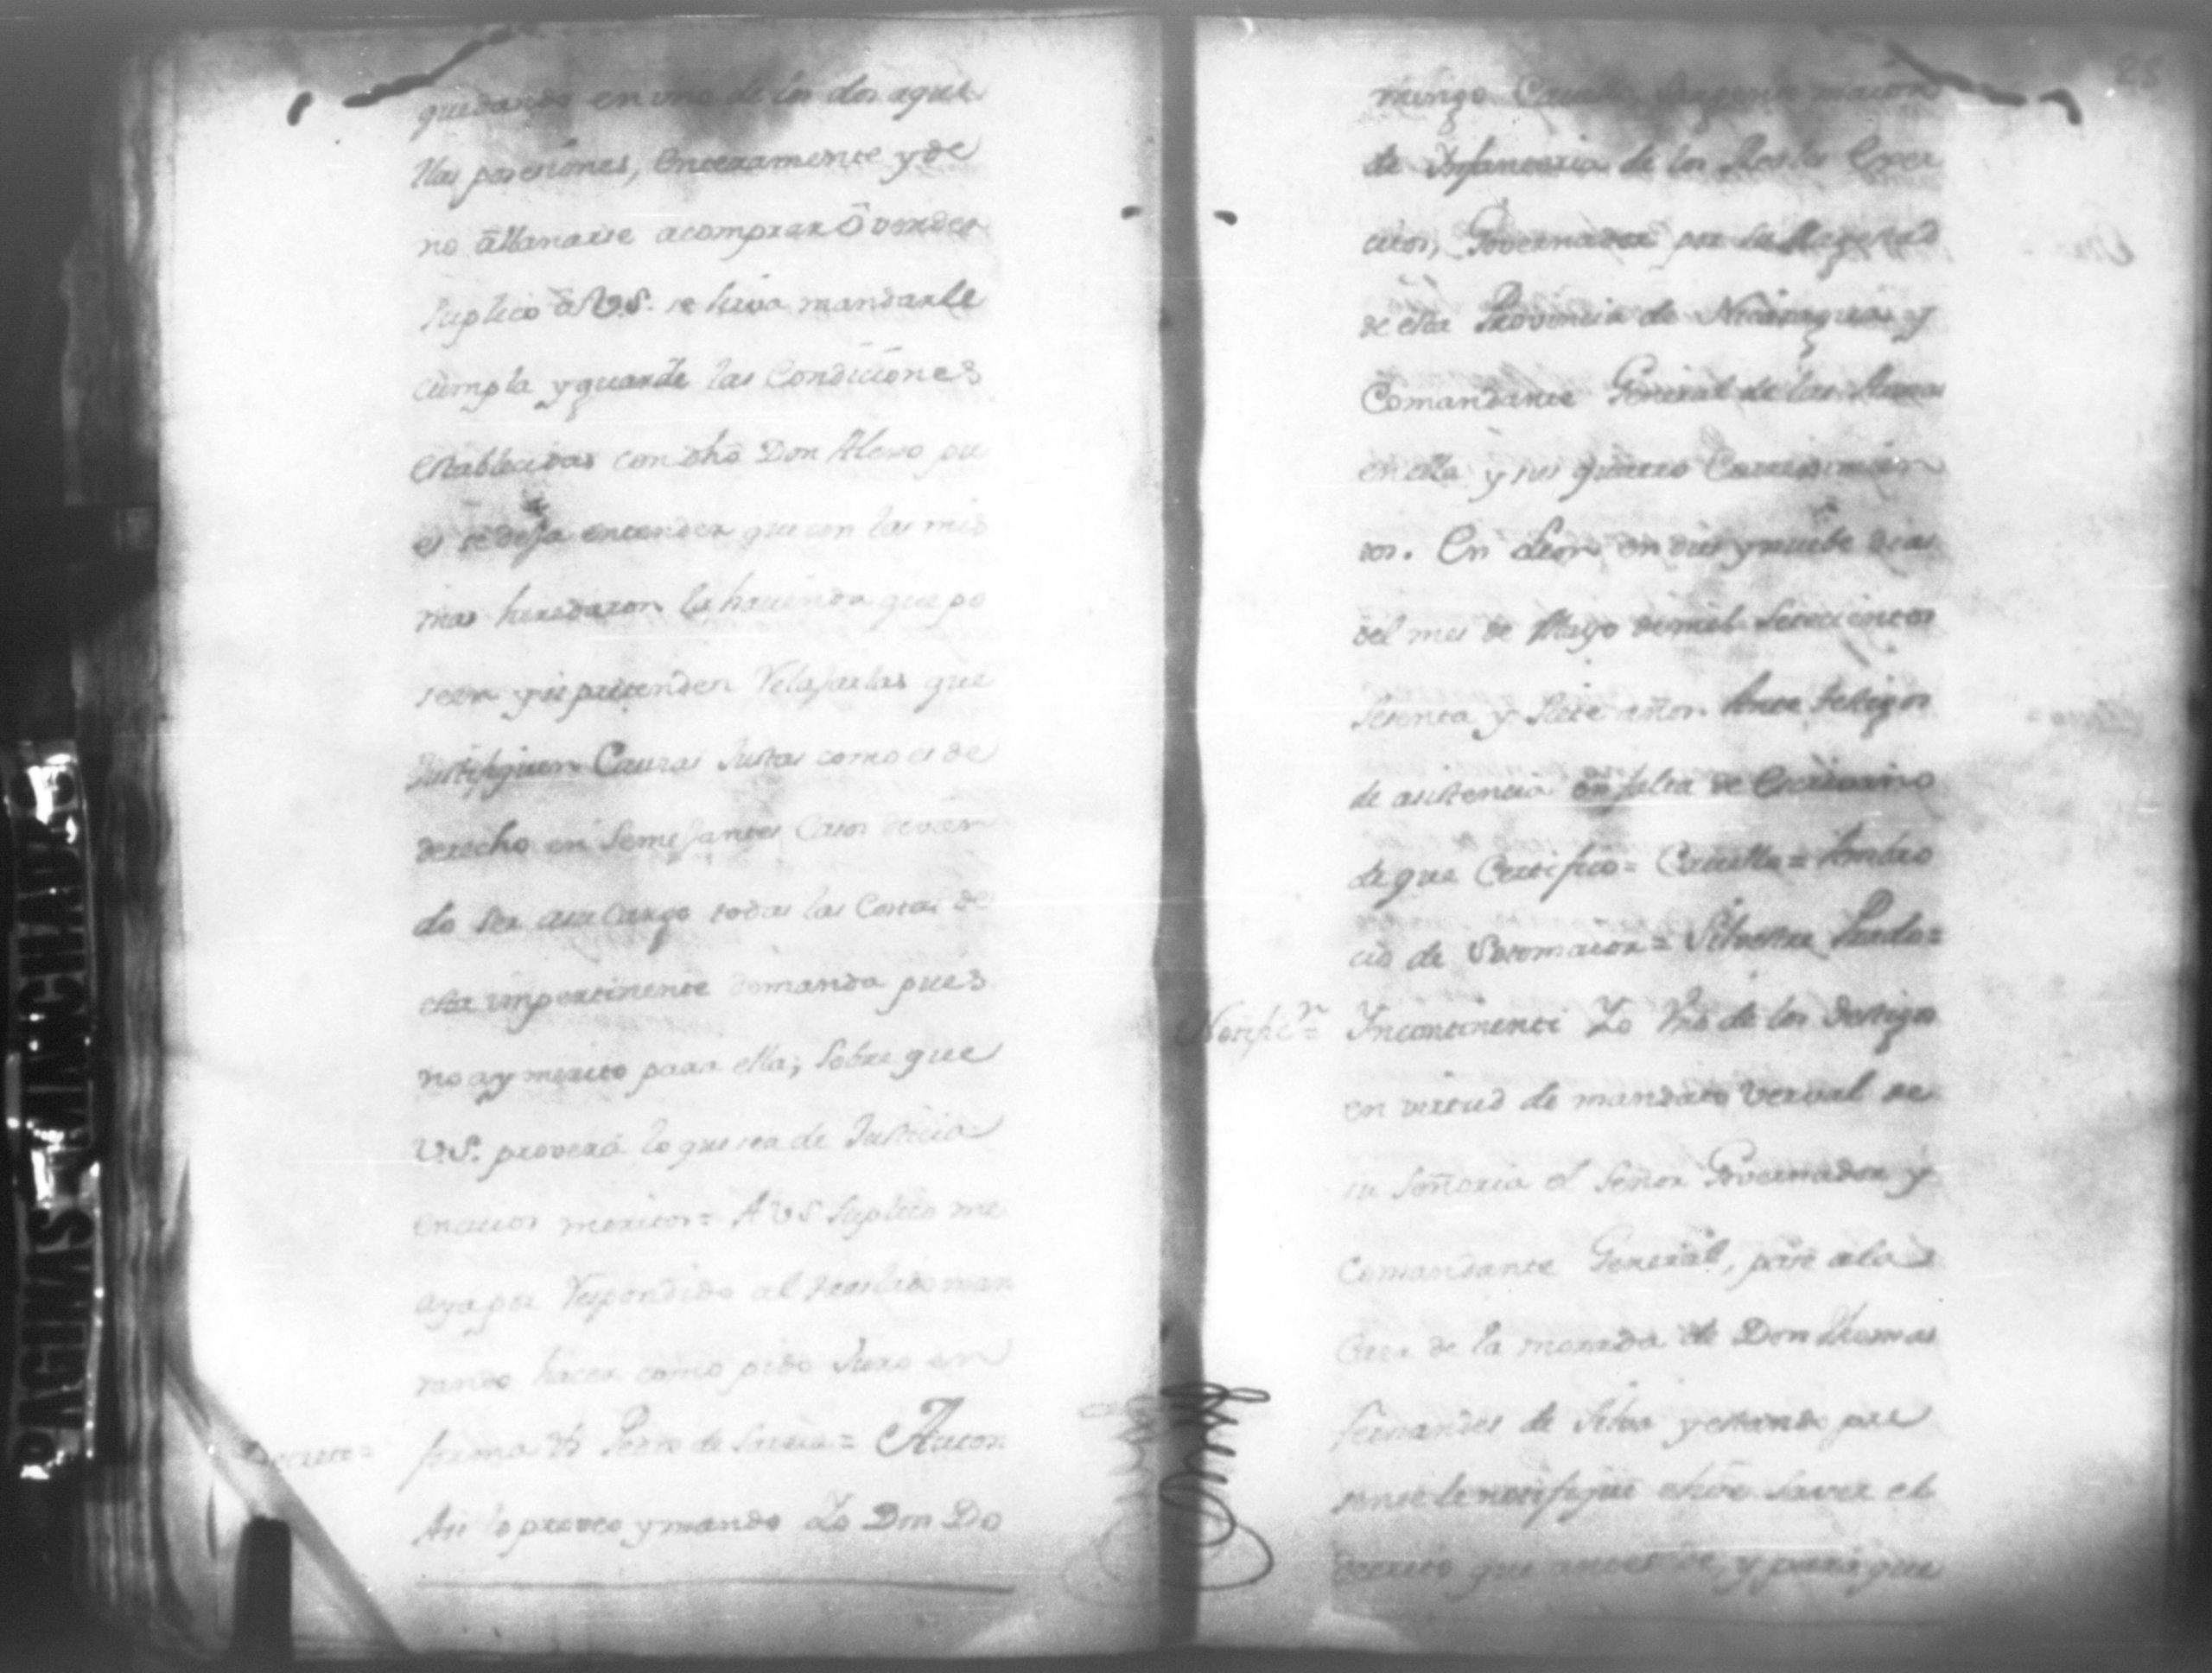 quedando en uno de los dos aque
llas posesiones, enteramente y de
no âllanarse acomprar ô vender
suplico â V.S. se sirva mandarle
cumpla y guarde las Condiciones
establecidas con dhô Don Alexo pu
es se deja entender que con las mis
mas heredaron la hacienda que po
seen y si pretenden relajarlas que
Justifiquen Causas Justas como es de
derecho en Semejantes Casos devien
do ser asu Cargo todas las Costas de
esta impertinente demanda pues
no ay merito para ella; Sobre que
V.S. proverá lo que sea de Justicia
en cuios meritos = A V S Suplico me
aya por Respondido al traslado man
dando hacer como pido Juro en
Decreto = forma &ª Pedro de = Autos
Asi lo proveo y mando Yo Don Do
28
mingo Cavello Sargento maior
de Ynfanteria de los Reales Exer
citos, Governador por Su Magestad
de esta Provincia de Nicaragua y
Comandante General de las Armas
en ella y sus quatro Corregimien
tos. En Leon en dies y nuebe dias
del mes de Mayo demil Setecientos
Setenta y Siete años. Ante testigos
de asistencia en falta de Escribano
de que Certifico = Cavello = Ambro
cio de Sotomaior = Silvestre Pardo =
Notific.n = Yncontinenti Yo Uno de los Testigos
en virtud de mandato verval de
su Señoria el Señor Governador y
Comandante General, pasé ala
Casa de la morada de Don Thomas
Fernandes de Silva y estando pre
sente le notifiqué e hise Saver el
decreto que antesede, y para que